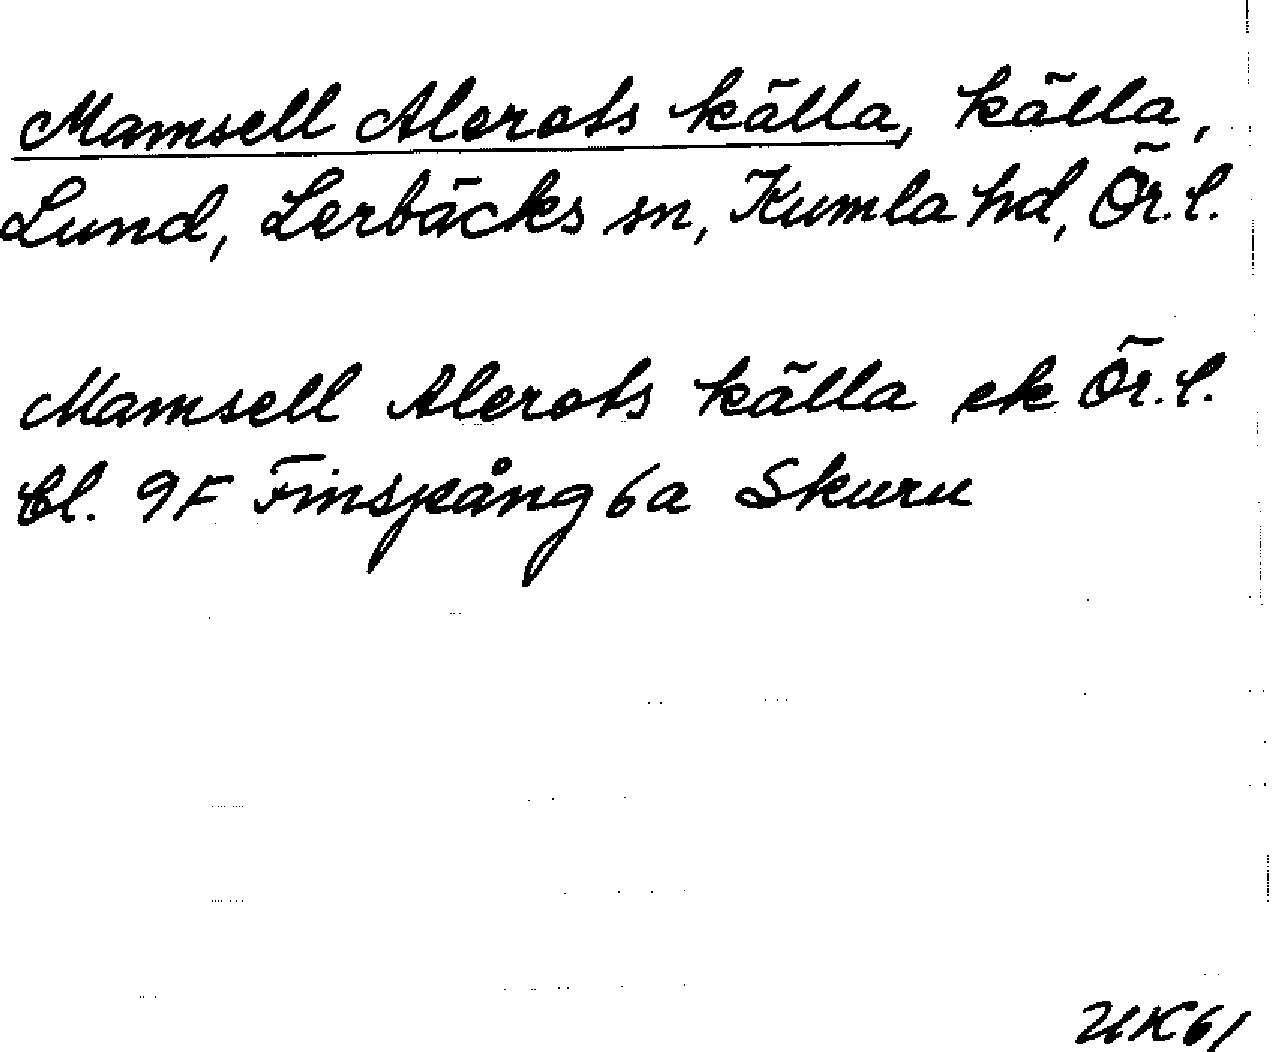 Mamsell Alerots källa, källa,
Lund, Lerbäcks sn, Kumla hd, Ör. l.
Mamsell Alerots källa ek Ör. l.
bl. 9F Finspång 6a Skuru
UK61